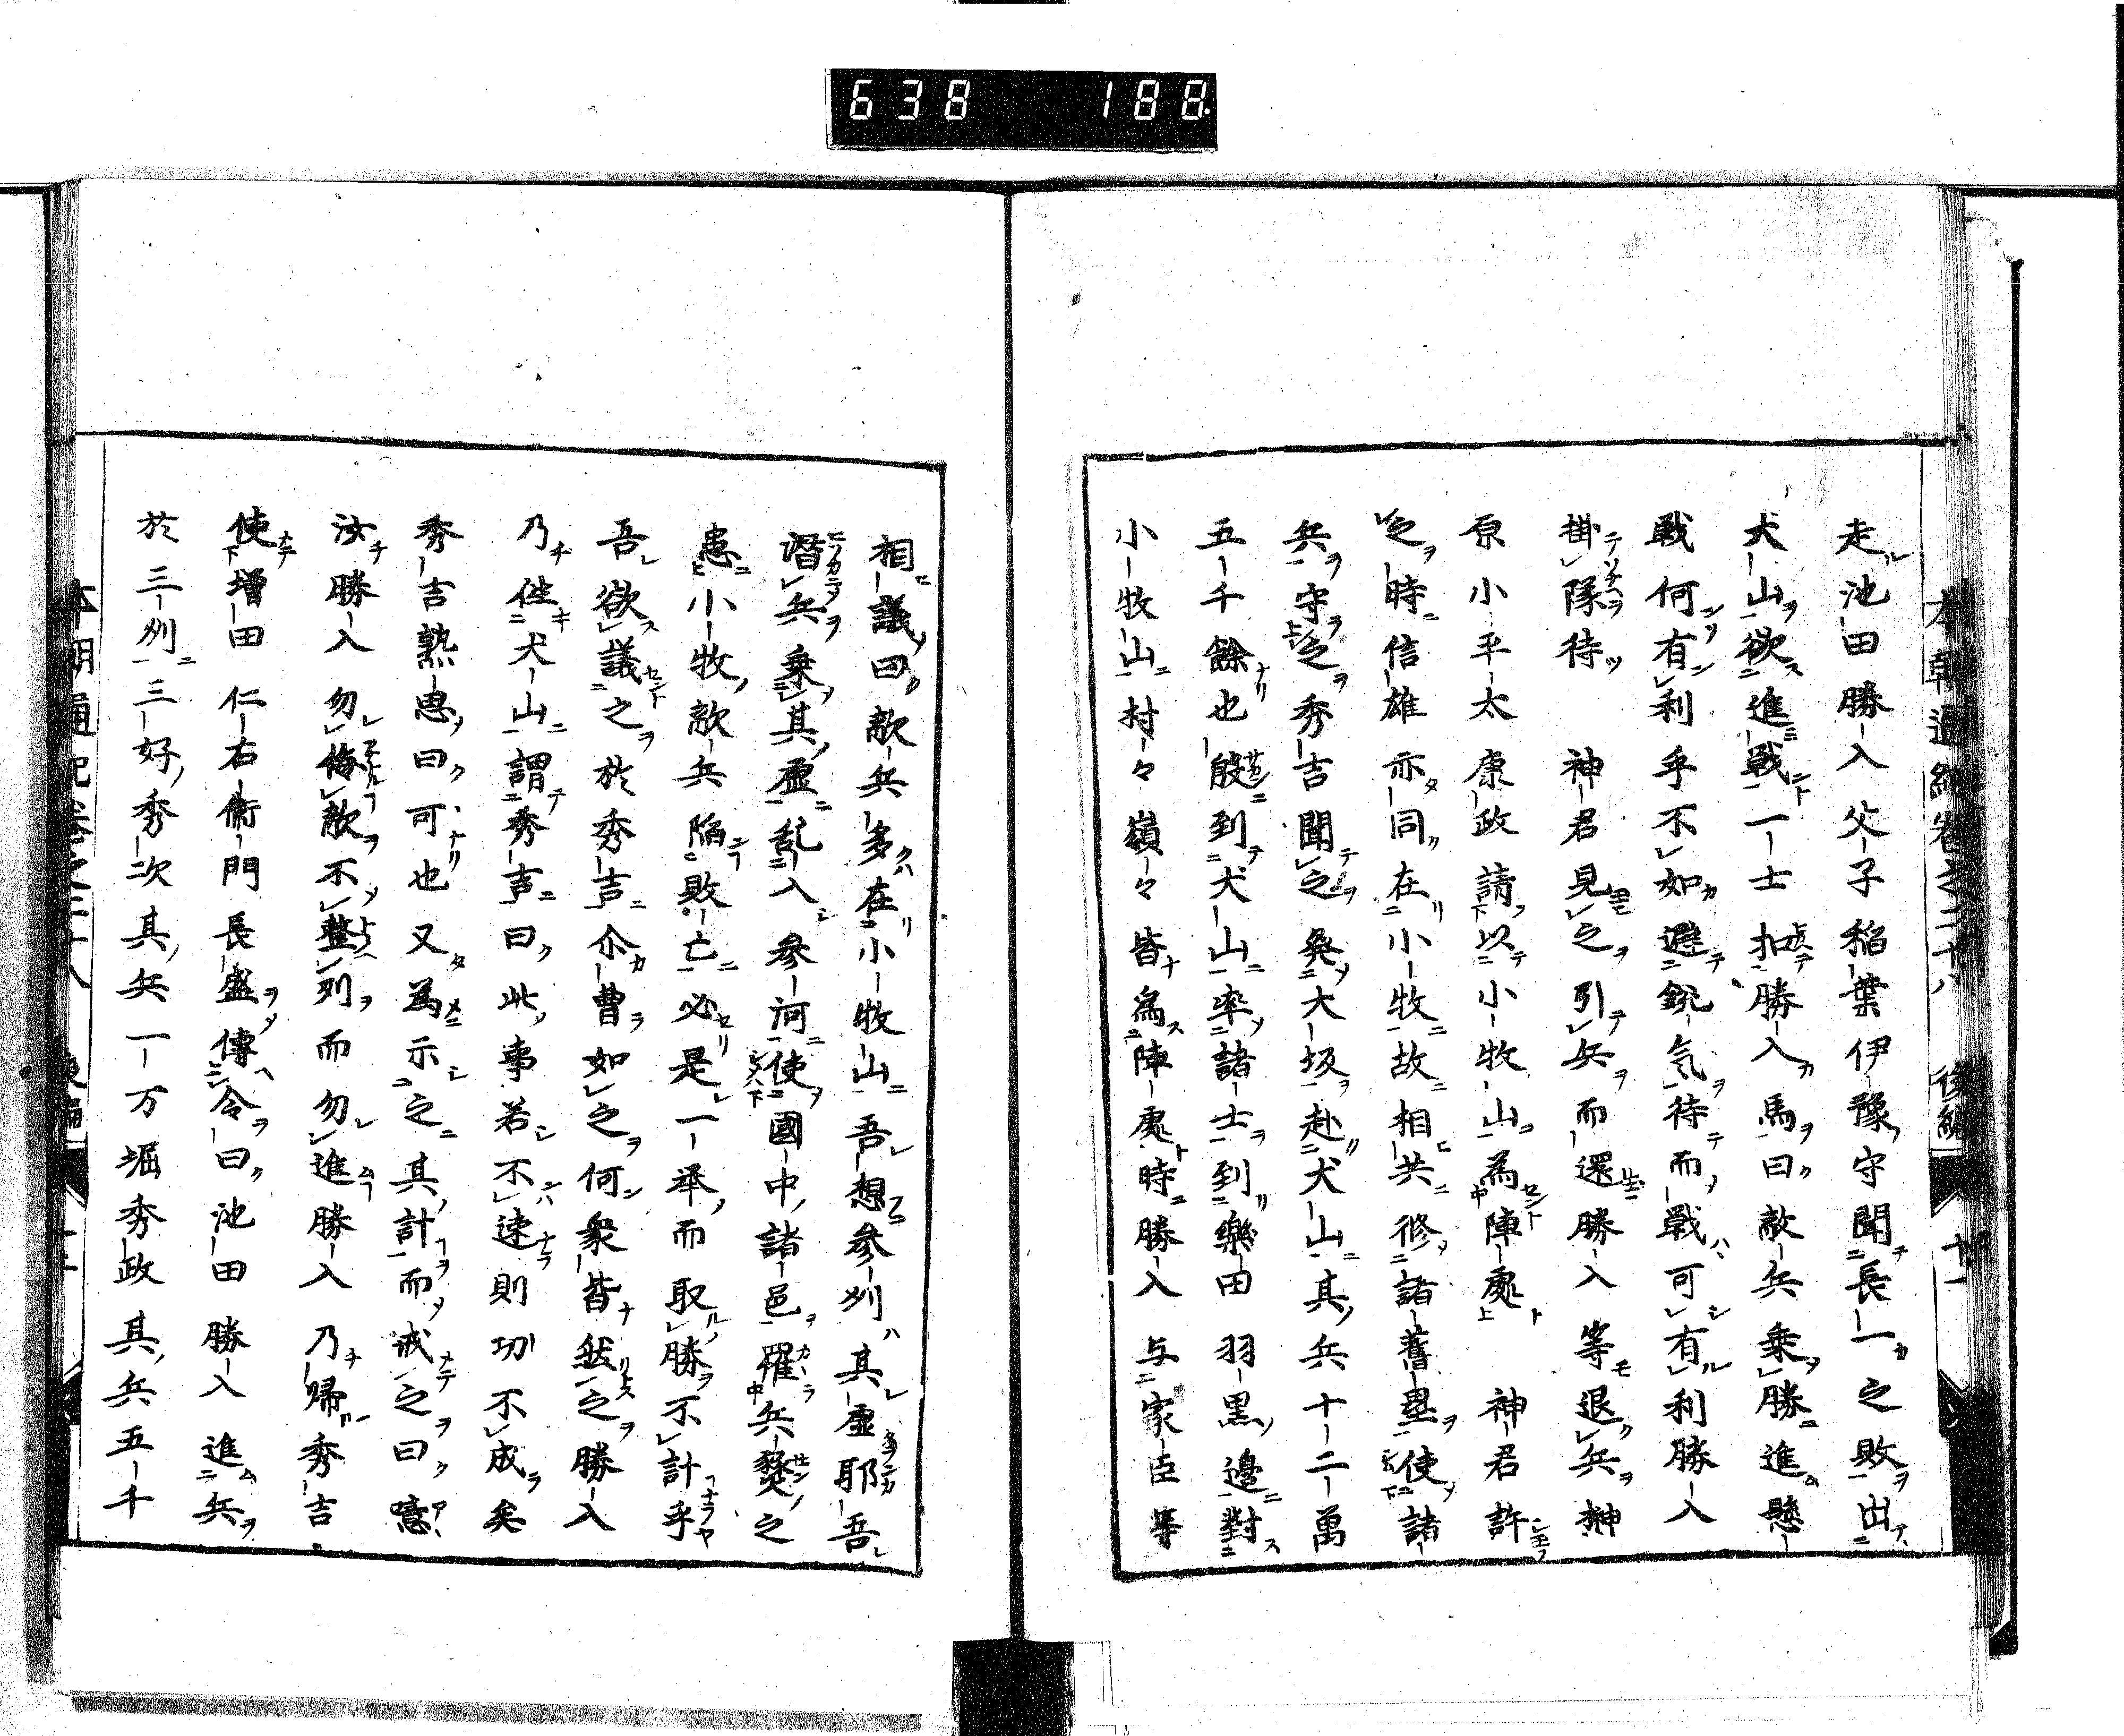 638 188.
本朝通紀卷之二十八 後編 十一
走池田勝入父子稲葉伊豫守聞長一之敗出
犬山欲進戰一士扣勝入馬曰敵兵乗勝進懸
戰何有利乎不如避鋭気待而戰可有利勝入
掛隊待 神君見之引兵而還勝入等退兵榊
原小平太康政請以小牧山為陣處 神君許
之時信雄亦同在小牧故相共修諸舊塁使諸
兵守之秀吉聞之発大坂赴犬山其兵十二萬
五千餘也殿到犬山率諸士到樂田羽黒邊對
小牧山村々嶺々皆為陣處時勝入与家臣等
相議曰敵兵多在小牧山吾想参刕其虚耶吾
潜兵乗其虚乱入参河使國中諸邑罹兵燹之
患小牧敵兵陥敗亡必是一举而取勝不計乎
吾欲議之於秀吉尒曹如之何衆皆然之勝入
乃往犬山謂秀吉曰此事若不速則功不成矣
秀吉熟思曰可也又為示之其計而戒之曰噫
汝勝入勿侮敵不整列而勿進勝入乃歸秀吉
使増田仁右衛門長盛傳令曰池田勝入進兵
於三刕三好秀次其兵一万堀秀政其兵五千
本朝通紀卷之二十八 後編